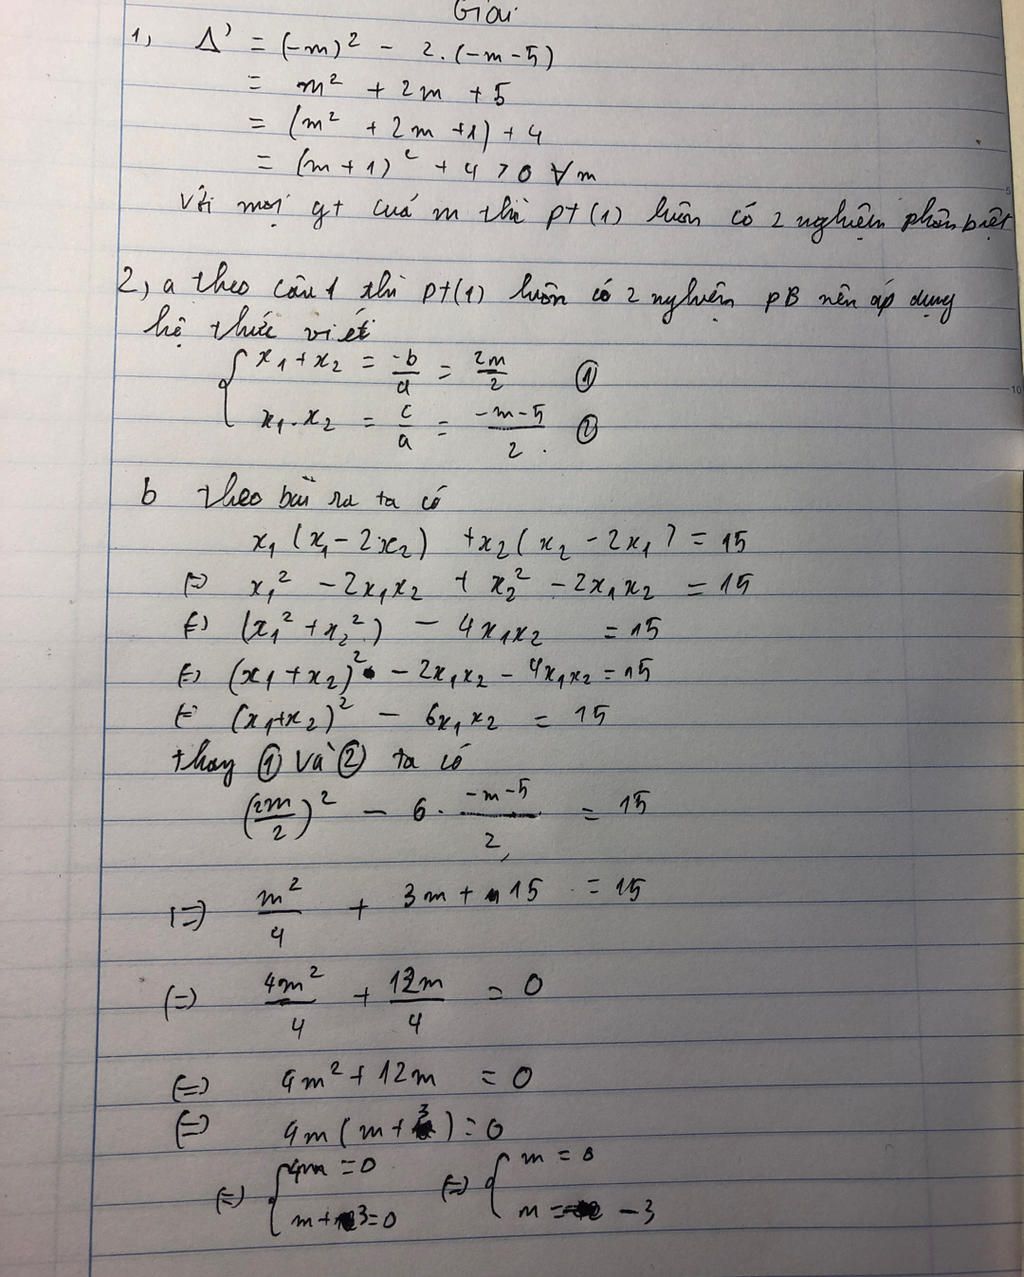 Giải
1, Δ' = (-m)² - 2.(-m-5)
= m² + 2m + 5
= (m² + 2m + 1) + 4
= (m+1)² + 4 > 0 ∀m
Với mọi gt của m thì pt (1) luôn có 2 nghiệm phân biệt
2, a theo câu 1 thì pt(1) luôn có 2 nghiệm PB nên áp dụng
hệ thức viét
x₁ + x₂ = -b/a = 2m/2 ①
x₁.x₂ = c/a = -m-5/2. ②
b theo bài ra ta có
x₁(x₁ - 2x₂) + x₂(x₂ - 2x₁) = 15
(=) x₁² - 2x₁x₂ + x₂² - 2x₁x₂ = 15
(=) (x₁² + x₂²) - 4x₁x₂ = 15
(=) (x₁ + x₂)² - 2x₁x₂ - 4x₁x₂ = 15
(= (x₁+x₂)² - 6x₁x₂ = 15
thay ① và ② ta có
(2m/2)² - 6. -m-5/2 = 15
(=) m²/4 + 3m + 15 = 15
(=) 4m²/4 + 12m/4 = 0
(=) 4m² + 12m = 0
(=) 4m(m+3) = 0
(=) { 4m = 0 (=) { m = 0
m + 3 = 0 m = -3